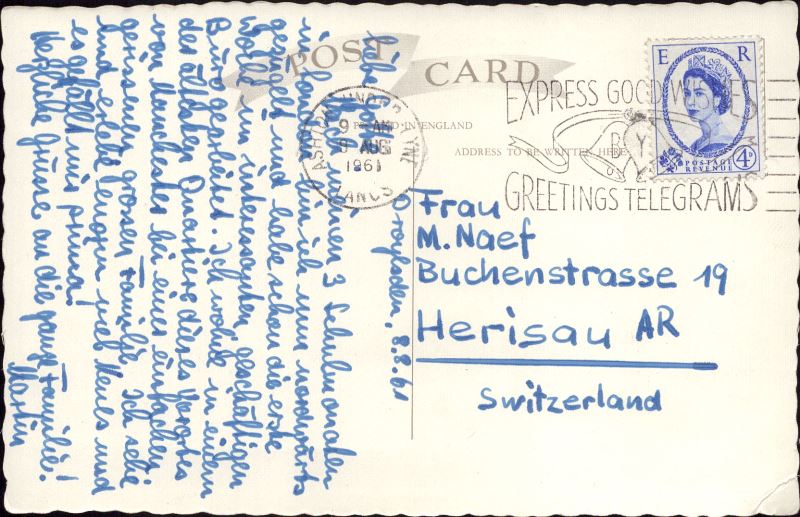 POST CARD
PRINTED IN ENGLAND
ADDRESS TO BE WRITTEN HERE
ASHTON-UNDER-LYNE
9 AM
8 AUG
1961
LANCS
EXPRESS GOOD WISHES
BY
GREETINGS TELEGRAMS
E R
POSTAGE
REVENUE
4D
Frau
M. Naef
Buchenstrasse 19
Herisau AR
Switzerland
Droylsden, 8.8.61
Liebe
Nach meinen 3 Schulmonaten
in London bin ich nun nordwärts
gezügelt und habe schon die erste
Woche im interessanten geschäftigen
Büro gearbeitet. Ich wohne in einem
der ältesten Quartiere dieses Vorortes
von Manchester bei einer einfachen
grossen Familie. Ich sehe
und erlebe viel Neues und
es gefällt mir prima!
Herzliche Grüsse an die ganze Familie!
Martin